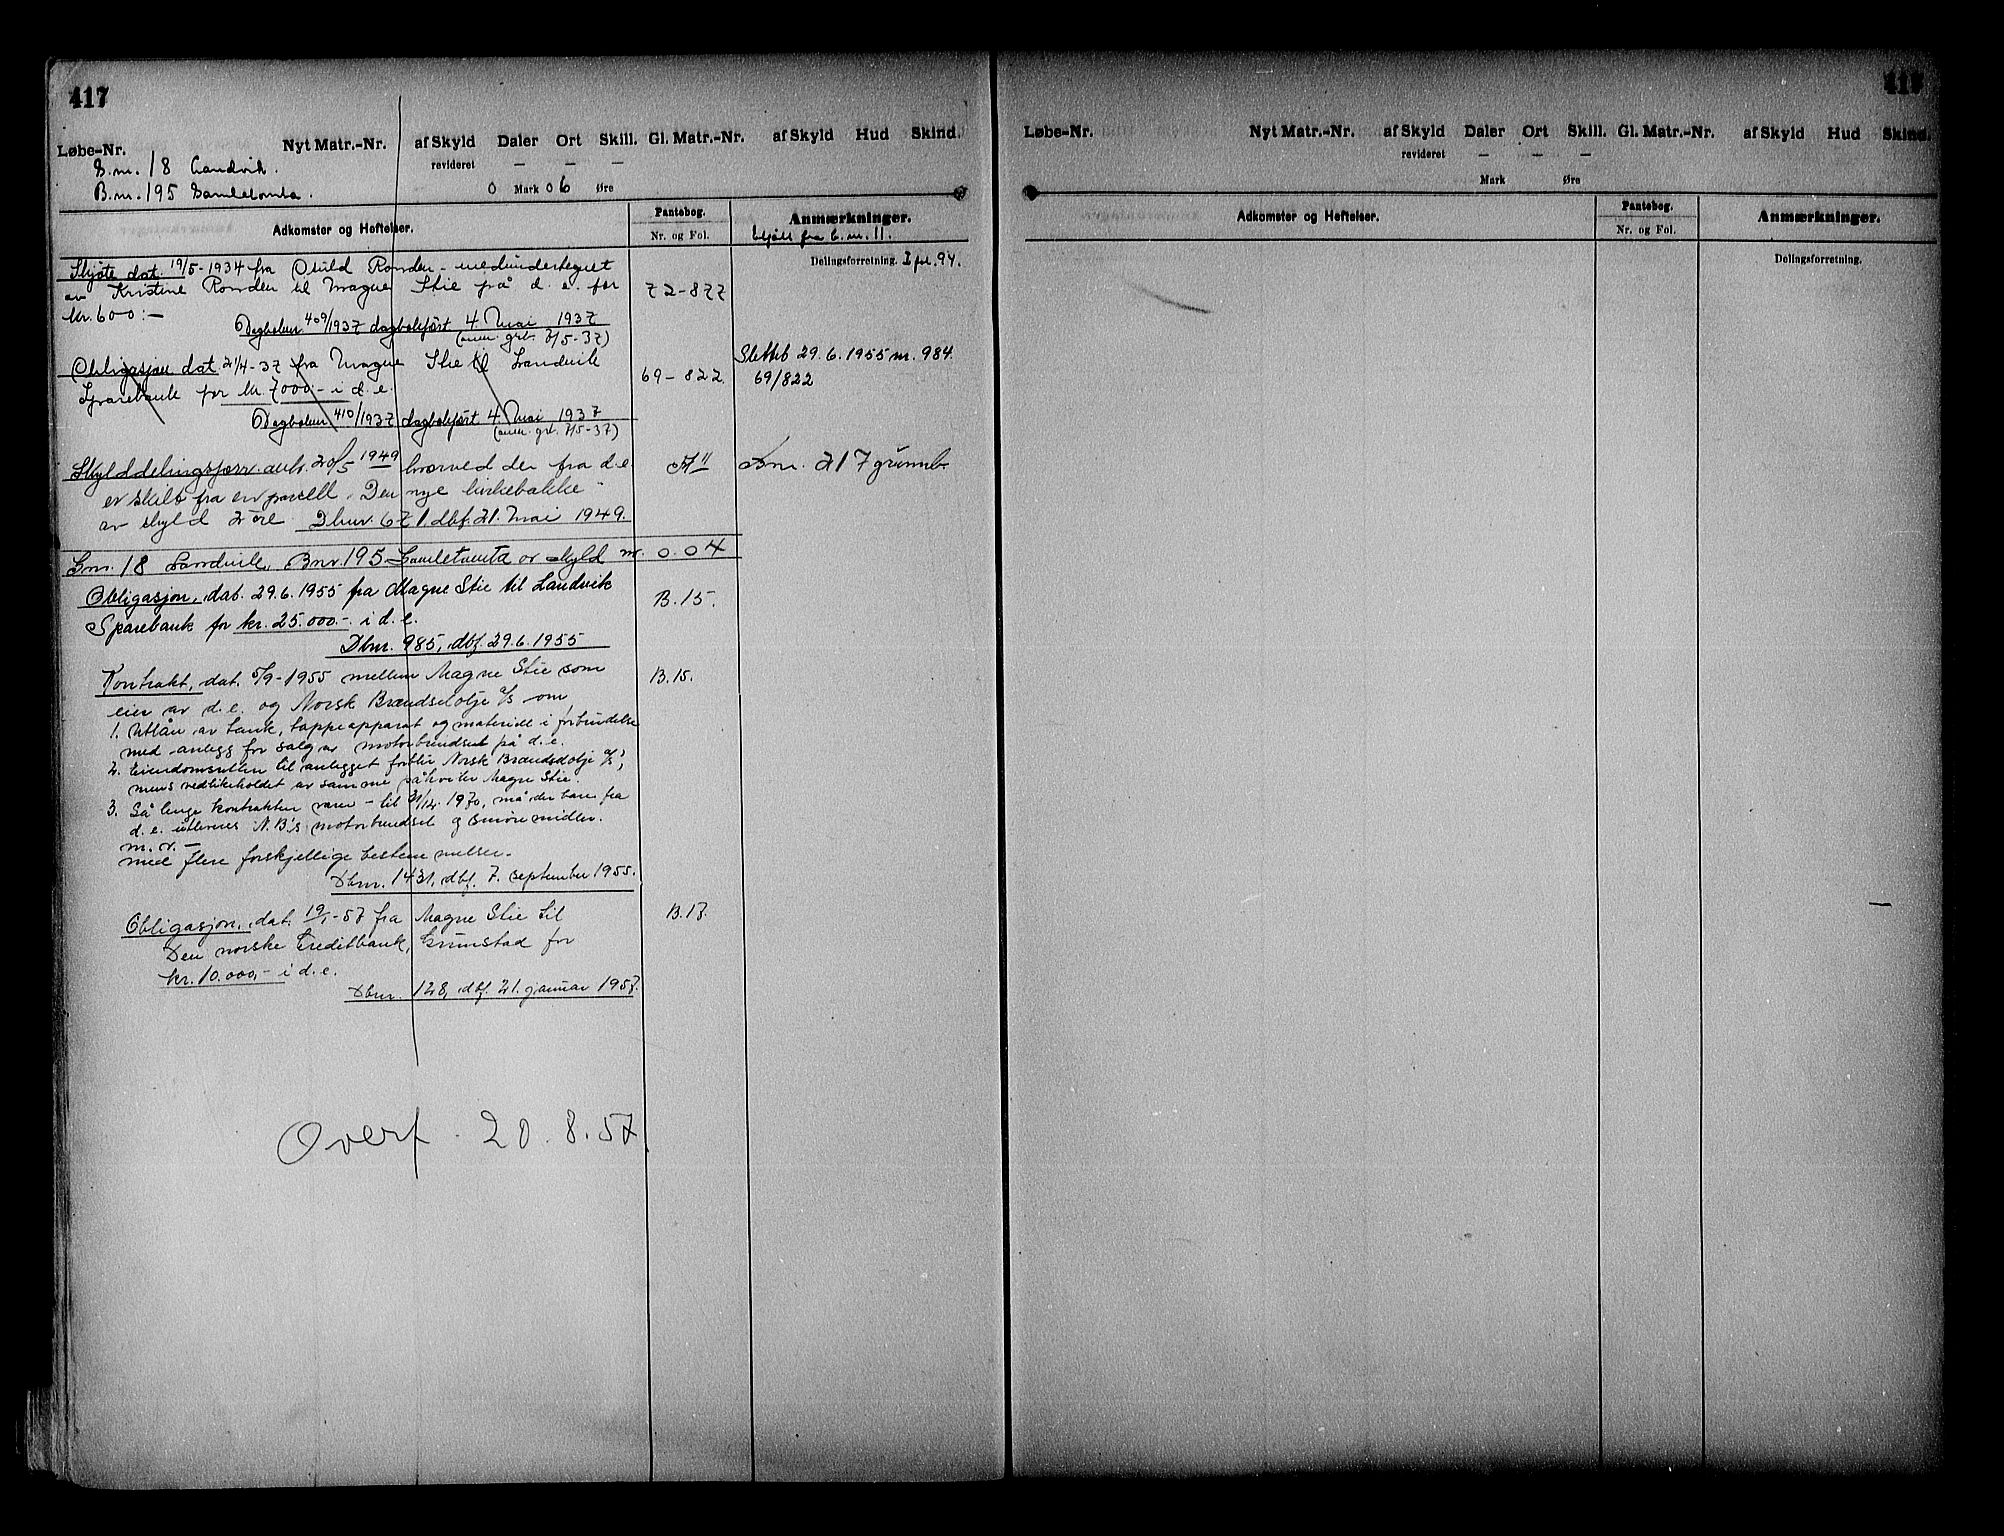 417
Løbe-Nr. Nyt Matr.-Nr. af Skyld Daler Ort Skill. Gl. Matr.-Nr. af Skyld Hud Skind.
revideret — — —
G.nr. 18 Landvik.
B.nr. 195 Gamletomta.
0 Mark 06 Øre
Adkomster og Heftelser. Pantebog. Nr. og Fol. Anmærkninger.
Utskilt fra b.nr. 11.
Delingsforretning. I fol. 94.
Skjøte dat. 19/5-1934 fra Ronden - medundertegnet
av Kristine Ronden til Magne Stie på d.e. for 72-877
kr. 600:-
Dagboknr. 409/1937 dagbokført 4. Mai 1937
(anm. grb. 7/5-37)
Obligasjon dat. 21/4-37 fra Magne Stie til Landvik 69-822. Slettet 29.6.1955 nr. 984.
Sparebank for kr. 7000:- i d.e. 69/822
Dagboknr. 410/1937 dagbokført 4. Mai 1937
(anm. grb. 7/5-37)
Skylddelingsforr. avh. 20/5 1949 hvorved der fra d.e. A 11 Bnr. 217 grunnb.
er skilt fra en parsell "Den nye birkebakke"
av skyld 2 øre Dbnr. 671. dbf. 21. Mai 1949.
Gnr. 18 Landvik, Bnr. 195 Gamletomta av skyld m. 0.04
Obligasjon, dat. 29.6.1955 fra Magne Stie til Landvik B.15.
Sparebank for kr. 25.000.- i d.e.
Dbnr. 985, dbf. 29.6.1955
Kontrakt, dat. 5/9-1955 mellem Magne Stie som B.15.
eier av d.e. og Norsk Brændselolje A/S om
1. Utlån av tank, tappeapparat og materiell i forbindelse
med anlegg for salg av motorbrendsel på d.e.
2. Eiendomsretten til anlegget forblir Norsk Brændselolje A/S',
mens vedlikeholdet av samme påhviler Magne Stie.
3. Så lenge kontrakten varer - til 31/12. 1970, må der bare fra
d.e. utleveres N.B's motorbrendsel og smøremidler.
m.v. -
med flere forskjellige bestemmelser.
Dbnr. 1431, dbf. 7. september 1955.
Obligasjon, dat. 19/1-57 fra Magne Stie til B.17.
Den norske Creditbank, Grimstad for
kr. 10.000,- i d.e.
Dbnr. 128, dbf. 21. januar 1957.
Overf. 20.8.57
417
Løbe-Nr. Nyt Matr.-Nr. af Skyld Daler Ort Skill. Gl. Matr.-Nr. af Skyld Hud Skind.
revideret — — —
Mark Øre
Adkomster og Heftelser. Pantebog. Nr. og Fol. Anmærkninger.
Delingsforretning.